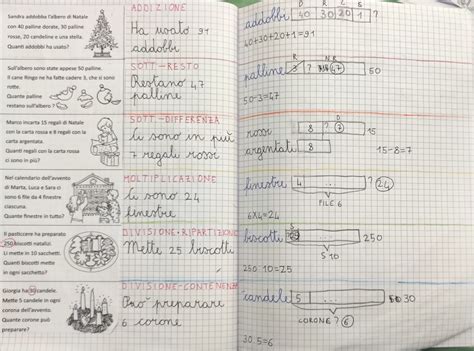 Sandra addobba l'albero di Natale
con 40 palline dorate, 30 palline
rosse, 20 candeline e una stella.
Quanti addobbi ha usato?
ADDIZIONE
Ha usato 91
addobbi
D R C S
addobbi 40 30 20 1 ?
40+30+20+1=91
Sull'albero sono state appese 50 palline.
Il cane Ringo ne ha fatte cadere 3, che si sono
rotte.
Quante palline
restano sull'albero?
SOTT-RESTO
Restano 47
palline
N R
palline 3 ? 47 50
50-3=47
Marco incarta 15 regali di Natale
con la carta rossa e 8 regali con la
carta argentata.
Quanti regali con la carta rossa
ci sono in più?
SOTT-DIFFERENZA
Ci sono in più
7 regali rossi
D
rossi 8 ? 7 15
argentati 8
15-8=7
Nel calendario dell'avvento
di Marta, Luca e Sara ci
sono 6 file da 4 finestre
ciascuna.
Quante finestre in tutto?
MOLTIPLICAZIONE
Ci sono 24
finestre
finestre 4 ? 24
FILE 6
6X4=24
Il pasticcere ha preparato
250 biscotti natalizi.
Li mette in 10 sacchetti.
Quanti biscotti mette
in ogni sacchetto?
DIVISIONE-RIPARTIZIONE
Mette 25 biscotti
S
biscotti 250
S 10
250:10=25
Giorgia ha 30 candele.
Mette 5 candele in ogni
corona dell'avvento.
Quante corone può
preparare?
DIVISIONE-CONTENENZA
Può preparare
6 corone
candele 5 30
CORONE ? 6
30:5=6